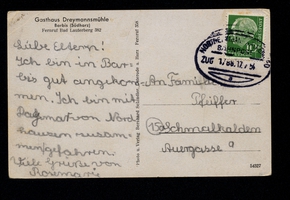 Gasthaus Dreymannsmühle
Barbis (Südharz)
Fernruf Bad Lauterberg 382
Liebe Eltern!
Ich bin in Bar-
bis gut angekom-
men. Ich bin mit
Dagmar von Nord
hausen zusam-
mengefahren.
Viele Grüße von
Rosemarie
An Familie
Pfeiffer
Schmalkalden
Auergasse 9
ZUG
14527